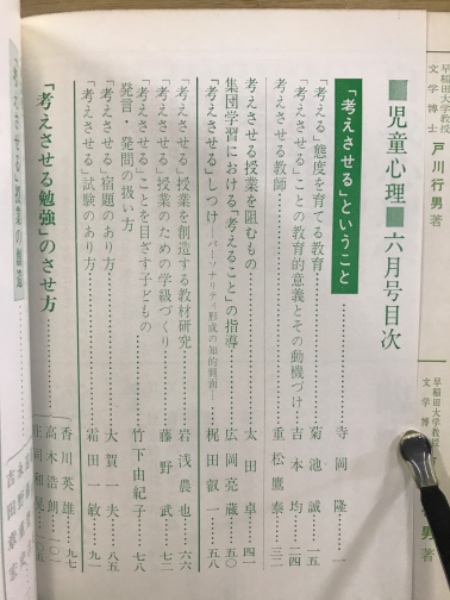 早稲田大学教授
文学博士 戸川行男著
■児童心理■六月号目次
「考えさせる」ということ……寺岡隆…一
「考える」態度を育てる教育……菊池誠…一五
「考えさせる」ことの教育的意義とその動機づけ…吉本均…二四
考えさせる教師……重松鷹泰…三二
考えさせる授業を阻むもの……太田卓…四一
集団学習における「考えること」の指導……広岡亮蔵…五〇
「考えさせる」しつけ―パーソナリティ形成の知的側面―…梶田叡一…五八
「考えさせる」授業を創造する教材研究……岩浅農也…六六
「考えさせる」授業のための学級づくり……藤野武…七二
「考えさせる」ことを目ざす子どもの
発言・発問の扱い方……竹下由紀子…七八
「考えさせる」宿題のあり方……大賀一夫…八五
「考えさせる」試験のあり方……霜田一敏…九一
「考えさせる勉強」のさせ方……
香川英雄…九七
高木浩朗…一〇一